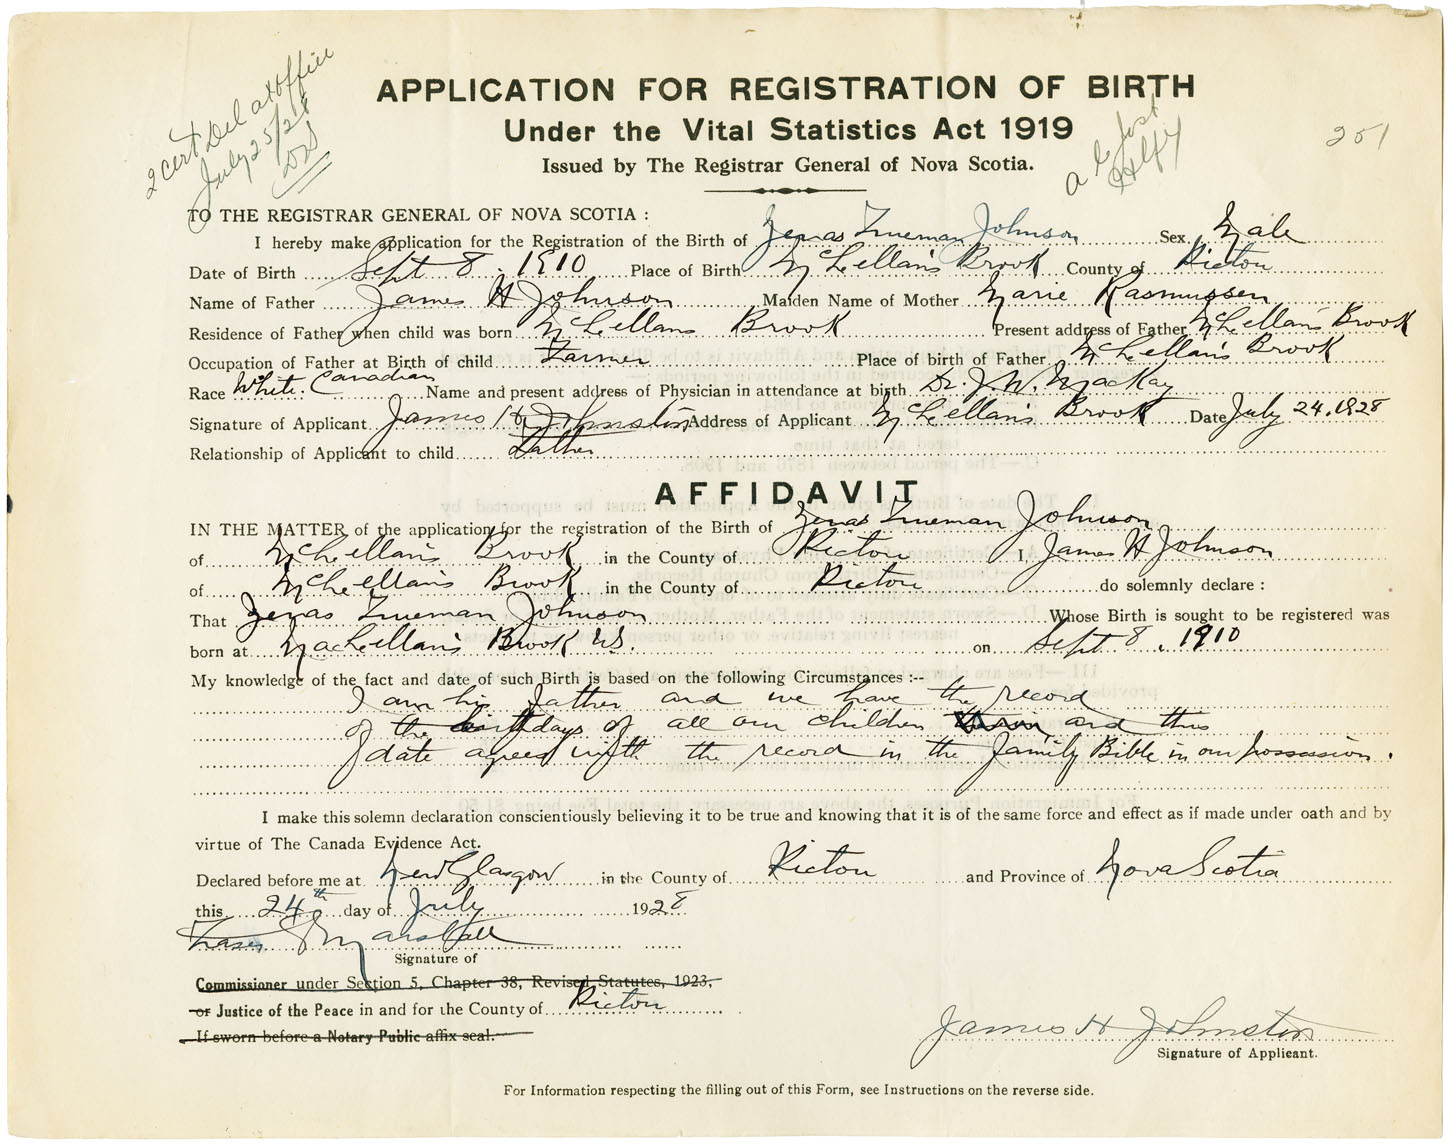 2 cert Del at office
July 25/28
APPLICATION FOR REGISTRATION OF BIRTH
Under the Vital Statistics Act 1919
Issued by The Registrar General of Nova Scotia.
251
TO THE REGISTRAR GENERAL OF NOVA SCOTIA :
I hereby make application for the Registration of the Birth of Zenas Trueman Johnson Sex Male
Date of Birth Sept 8, 1910 Place of Birth McLellan's Brook County of Pictou
Name of Father James H Johnson Maiden Name of Mother Marie Rasmussen
Residence of Father when child was born McLellans Brook Present address of Father McLellan's Brook
Occupation of Father at Birth of child Farmer Place of birth of Father McLellan's Brook
Race White. Canadian Name and present address of Physician in attendance at birth Dr. J. W. MacKay
Signature of Applicant James H Johnston Address of Applicant McLellan's Brook Date July 24, 1928
Relationship of Applicant to child Father
AFFIDAVIT
IN THE MATTER of the application for the registration of the Birth of Zenas Trueman Johnson
of McLellan's Brook in the County of Pictou I, James H Johnson
of McLellan's Brook in the County of Pictou do solemnly declare :
That Zenas Trueman Johnson Whose Birth is sought to be registered was
born at MacLellan's Brook N.S. on Sept 8, 1910
My knowledge of the fact and date of such Birth is based on the following Circumstances :--
I am his father and we have the record
of the birthdays of all our children and this
date agrees with the record in the family Bible in our possession.
I make this solemn declaration conscientiously believing it to be true and knowing that it is of the same force and effect as if made under oath and by
virtue of The Canada Evidence Act.
Declared before me at New Glasgow in the County of Pictou and Province of Nova Scotia
this 24th day of July 1928
Fraser Marshall
Signature of
Commissioner under Section 5, Chapter 38, Revised Statutes, 1923,
or Justice of the Peace in and for the County of Pictou
If sworn before a Notary Public affix seal.
James H Johnston
Signature of Applicant.
For Information respecting the filling out of this Form, see Instructions on the reverse side.